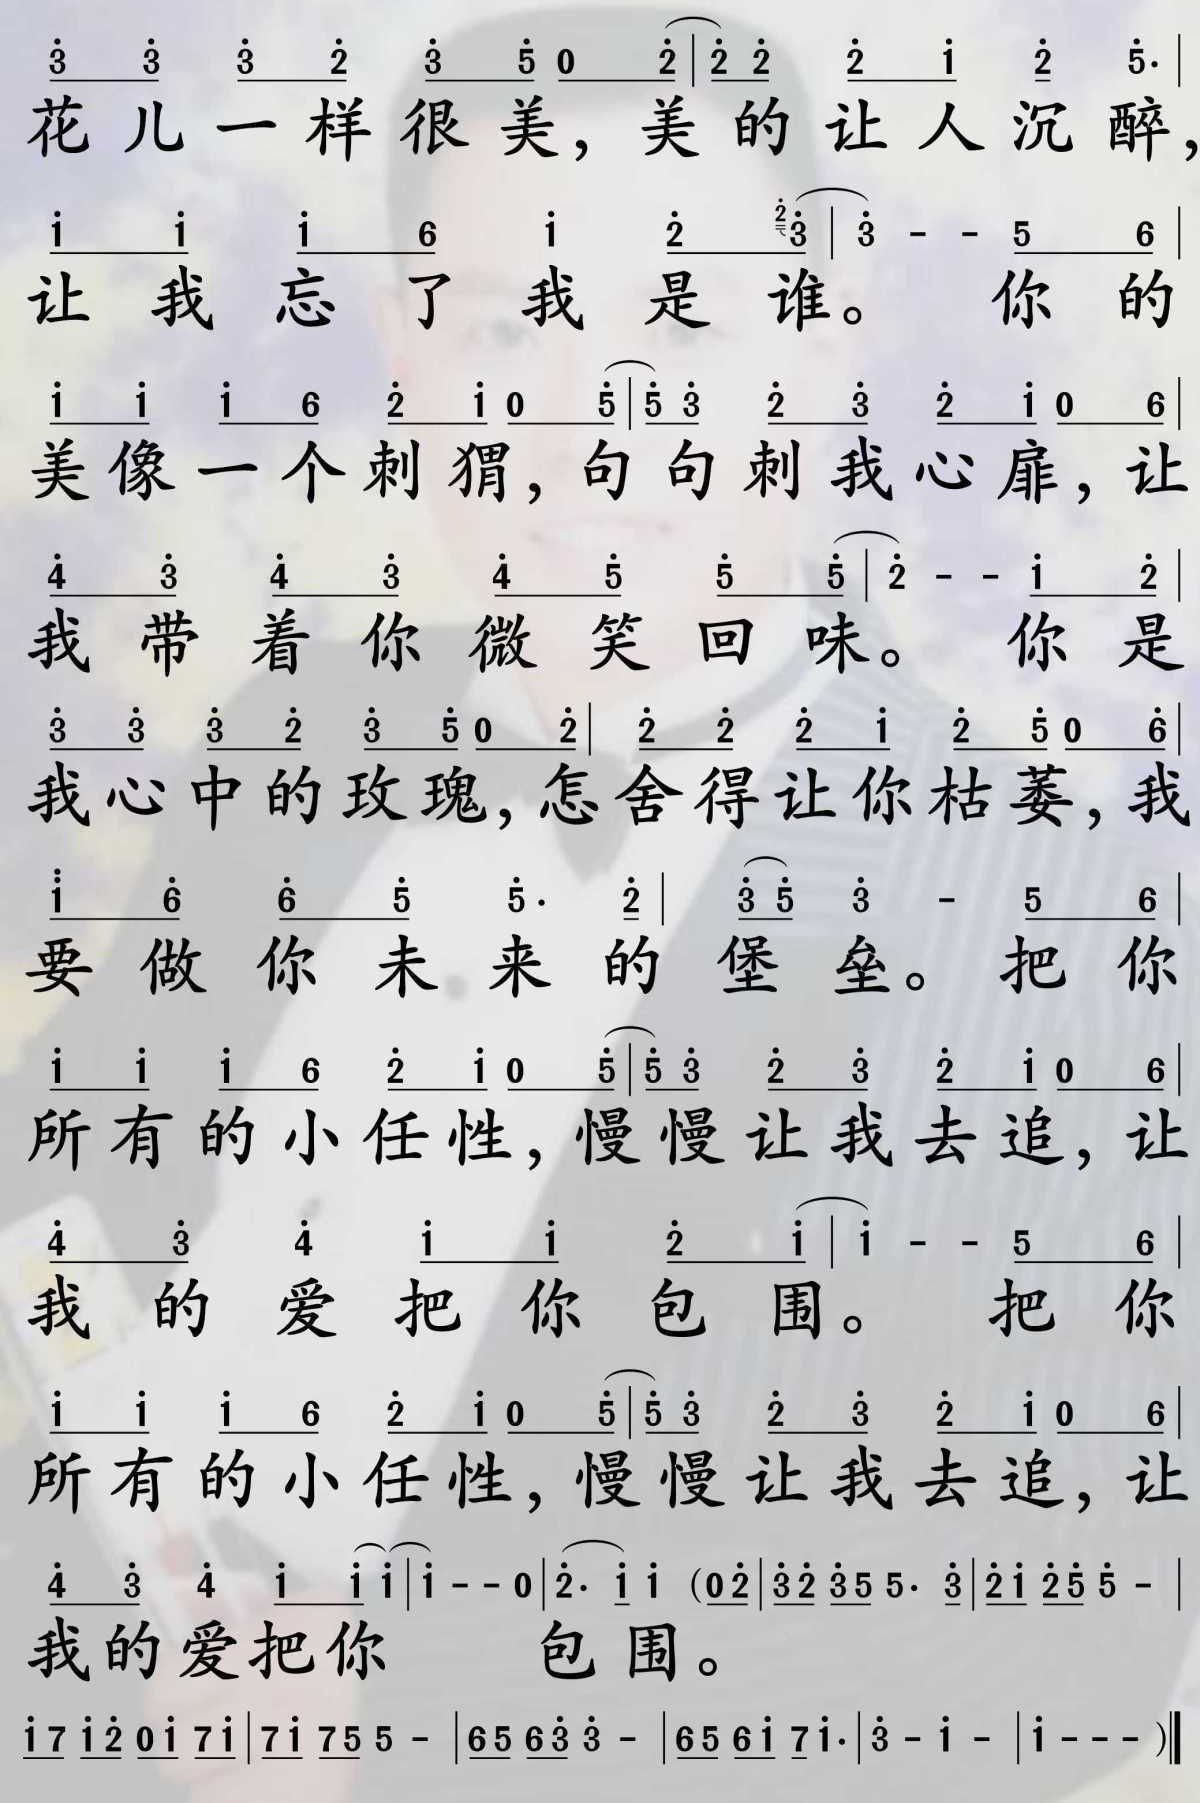 3 3 3 2 3 5 0 2 | 2 2 2 1 2 5· |
花儿一样很美，美的让人沉醉，
1 1 1 6 1 2 2 3 | 3 - - 5 6 |
让我忘了我是谁。你的
1 1 1 6 2 1 0 5 | 5 3 2 3 2 1 0 6 |
美像一个刺猬，句句刺我心扉，让
4 3 4 3 4 5 5 5 | 2 - - 1 2 |
我带着你微笑回味。你是
3 3 3 2 3 5 0 2 | 2 2 2 1 2 5 0 6 |
我心中的玫瑰，怎舍得让你枯萎，我
1 6 6 5 5· 2 | 3 5 3 - 5 6 |
要做你未来的堡垒。把你
1 1 1 6 2 1 0 5 | 5 3 2 3 2 1 0 6 |
所有的小任性，慢慢让我去追，让
4 3 4 1 1 2 1 | 1 - - 5 6 |
我的爱把你包围。把你
1 1 1 6 2 1 0 5 | 5 3 2 3 2 1 0 6 |
所有的小任性，慢慢让我去追，让
4 3 4 1 1 1 | 1 - - 0 | 2· 1 1 (0 2 | 3 2 3 5 5· 3 | 2 1 2 5 5 - |
我的爱把你包围。
1 7 1 2 0 1 7 1 | 7 1 7 5 5 - | 6 5 6 3 3 - | 6 5 6 1 7 1· | 3 - 1 - | 1 - - - )‖